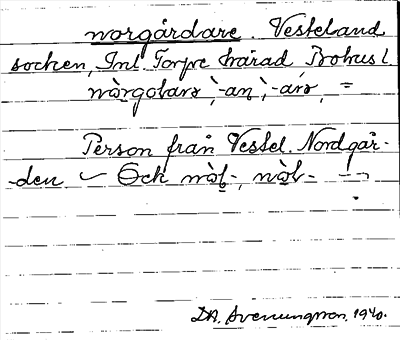 norgårdare. Vesteland
socken, Inl. Torpe härad Bohusl.
nòrgolarə, -an, -árs, =
Person från Vestel. Nordgår-
den ~ Och nòł-, nòł-
DA. Svenungsson. 1940.